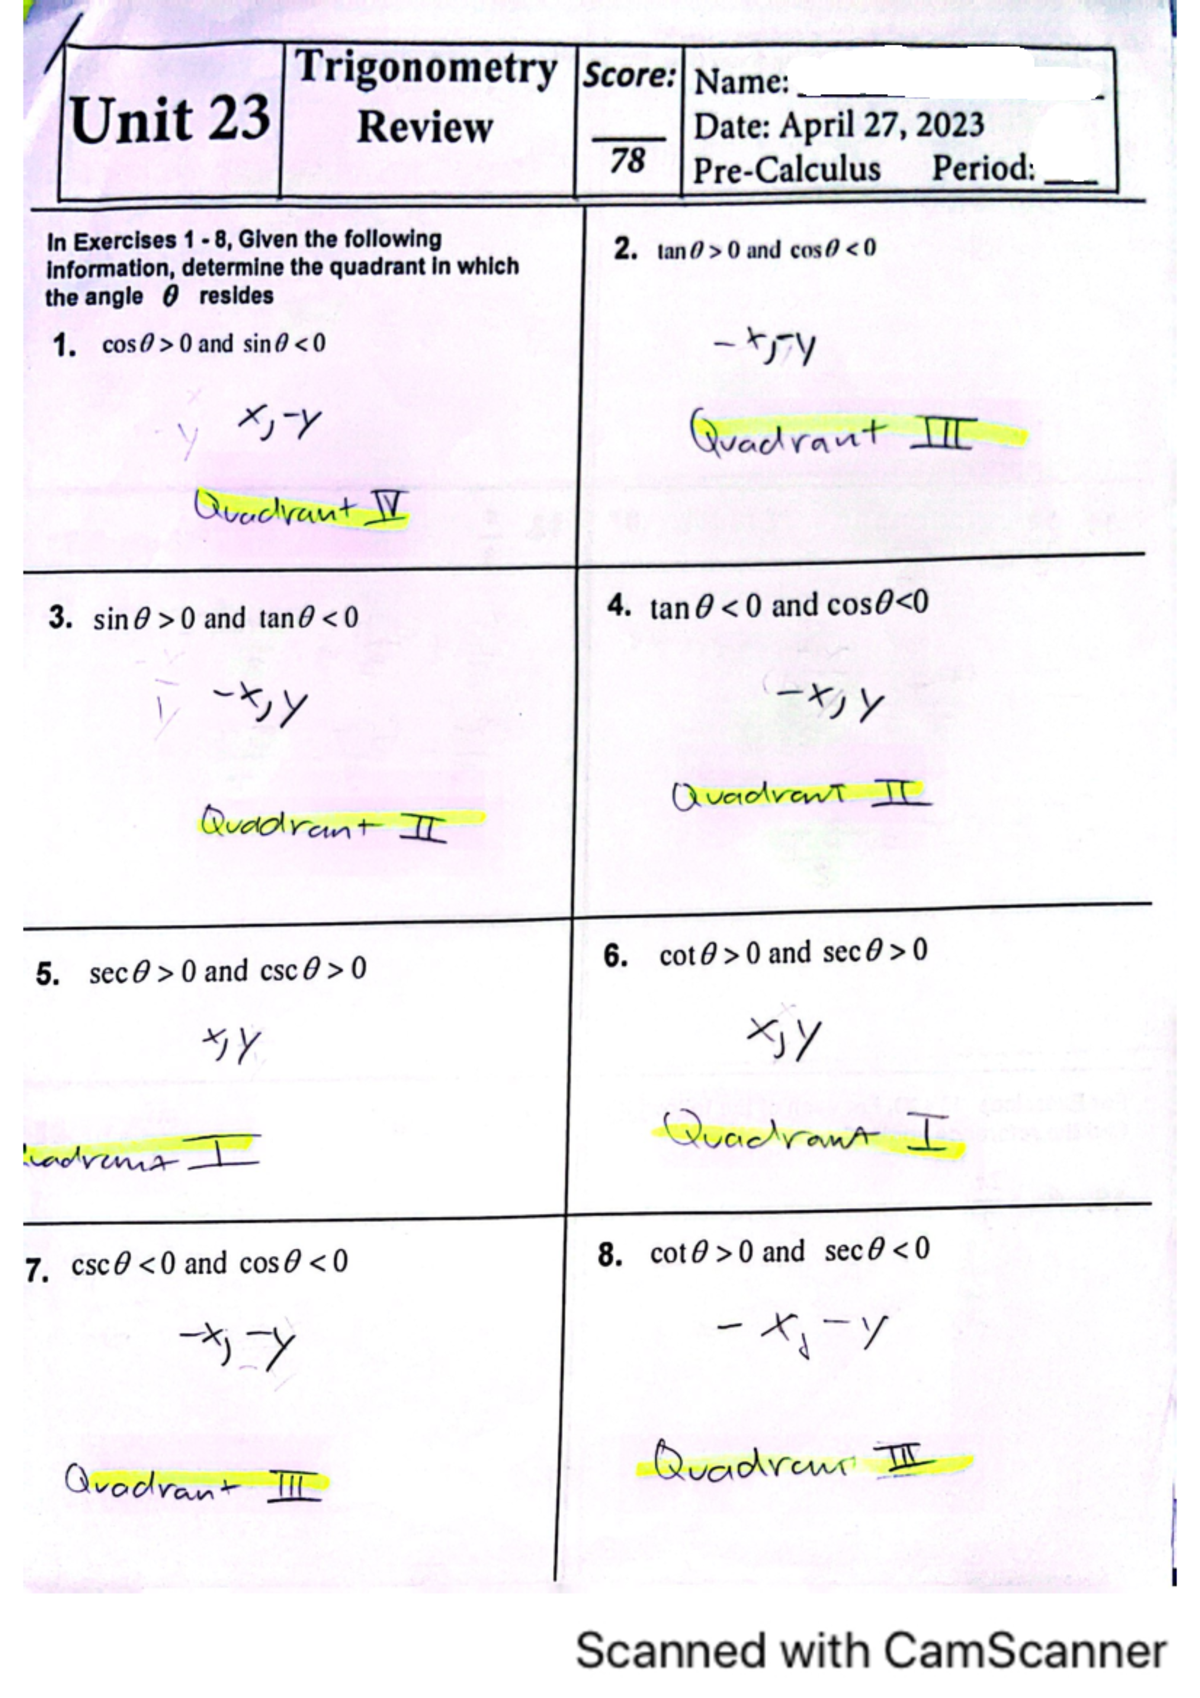 Unit 23
Trigonometry
Review
Score:
78
Name:
Date: April 27, 2023
Pre-Calculus Period:
In Exercises 1 - 8, Given the following
information, determine the quadrant in which
the angle θ resides
1. cosθ > 0 and sinθ < 0
x, -y
Quadrant IV
2. tanθ > 0 and cosθ < 0
-x, -y
Quadrant III
3. sinθ > 0 and tanθ < 0
-x, y
Quadrant II
4. tanθ < 0 and cosθ<0
-x, y
Quadrant II
5. secθ > 0 and cscθ > 0
x, y
uadrant I
6. cotθ > 0 and secθ > 0
x, y
Quadrant I
7. cscθ < 0 and cosθ < 0
-x, -y
Quadrant III
8. cotθ > 0 and secθ < 0
- x, -y
Quadrant III
Scanned with CamScanner